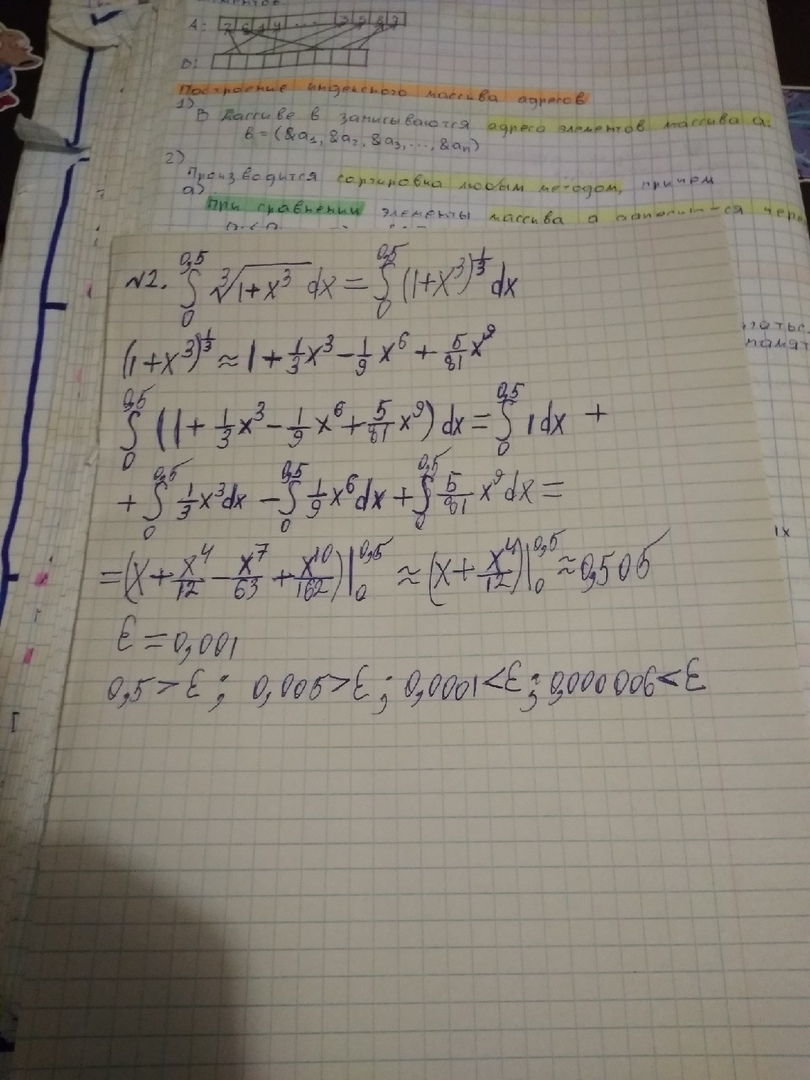 A:
D:
Построение индексного массива адресов
1)
В массиве в записываются адреса элементов массива а:
в = (&a₁, &a₂, &a₃, ..., &aₙ)
2)
Производится сортировка любым методом, причём
а)
При сравнении элементы массива а
№2. ∫₀^0,5 ∛(1+x³) dx = ∫₀^0,5 (1+x³)^(1/3) dx
(1+x³)^(1/3) ≈ 1 + 1/3 x³ - 1/9 x⁶ + 5/81 x⁹
∫₀^0,5 (1 + 1/3 x³ - 1/9 x⁶ + 5/81 x⁹) dx = ∫₀^0,5 1 dx +
+ ∫₀^0,5 1/3 x³ dx - ∫₀^0,5 1/9 x⁶ dx + ∫₀^0,5 5/81 x⁹ dx =
= (x + x⁴/12 - x⁷/63 + x¹⁰/162)|₀^0,5 ≈ (x + x⁴/12)|₀^0,5 ≈ 0,505
ε = 0,001
0,5 > ε ; 0,005 > ε ; 0,0001 < ε ; 0,000006 < ε